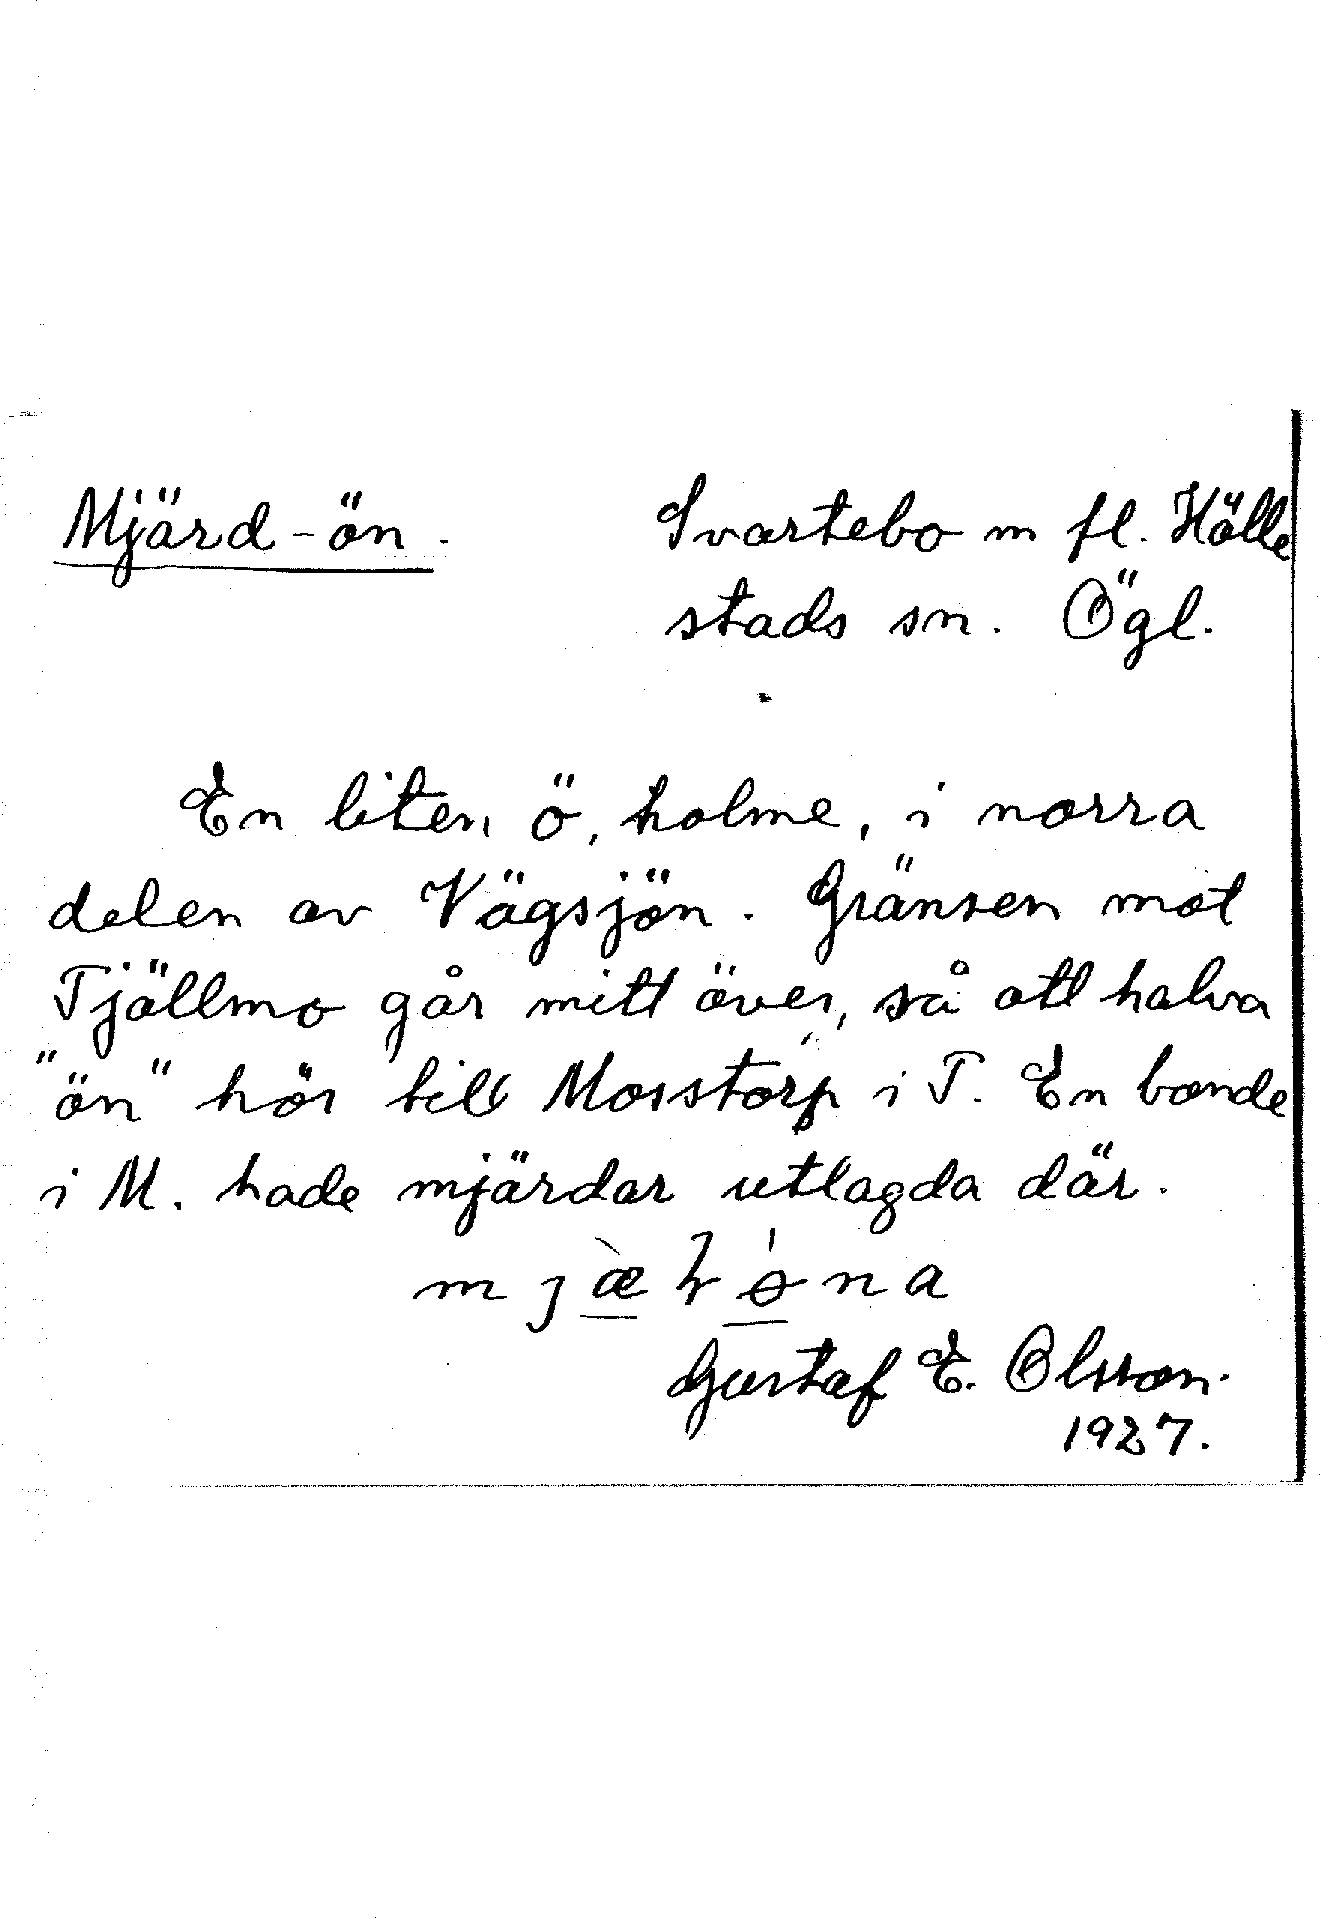 Mjärd-ön. Svartebo m fl. Hälle
stads sn. Ögl.
En liten ö, holme, i norra
delen av Vägsjön. Gränsen mot
Tjällmo går mitt över, så att halva
"ön" hör till Mosstorp i T. En bonde
i M. hade mjärdar utlagda där.
Gustaf E. Olsson.
1927.